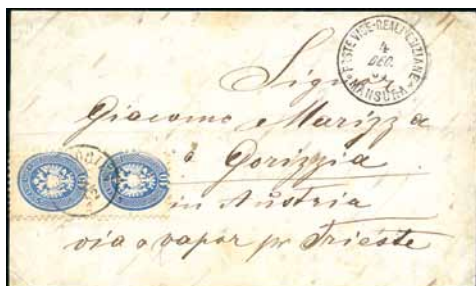 POSTE VICE-REALI EGIZIANE
4
DEC.
MANSURA
Signor
Giacomo Marizza
à Gorizzia
in Austria
via a vapor pr Trieste